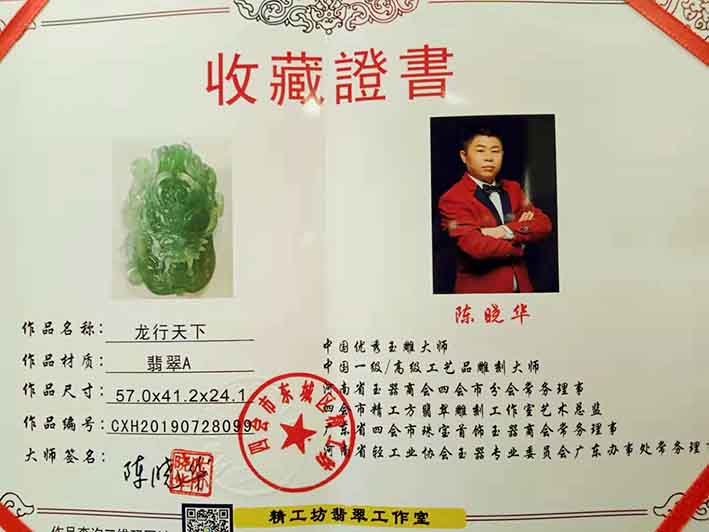 收藏證書
陈晓华
作品名称: 龙行天下
作品材质: 翡翠A
作品尺寸: 57.0x41.2x24.1
作品编号: CXH20190728099
大师签名: 陈晓华
中国优秀玉雕大师
中国一级/高级工艺品雕刻大师
河南省玉器商会四会市分会常务理事
四会市精工方翡翠雕刻工作室艺术总监
广东省四会市珠宝首饰玉器商会常务理事
河南省轻工业协会玉器专业委员会广东办事处常务理事
四会市东城区精工坊
精工坊翡翠工作室